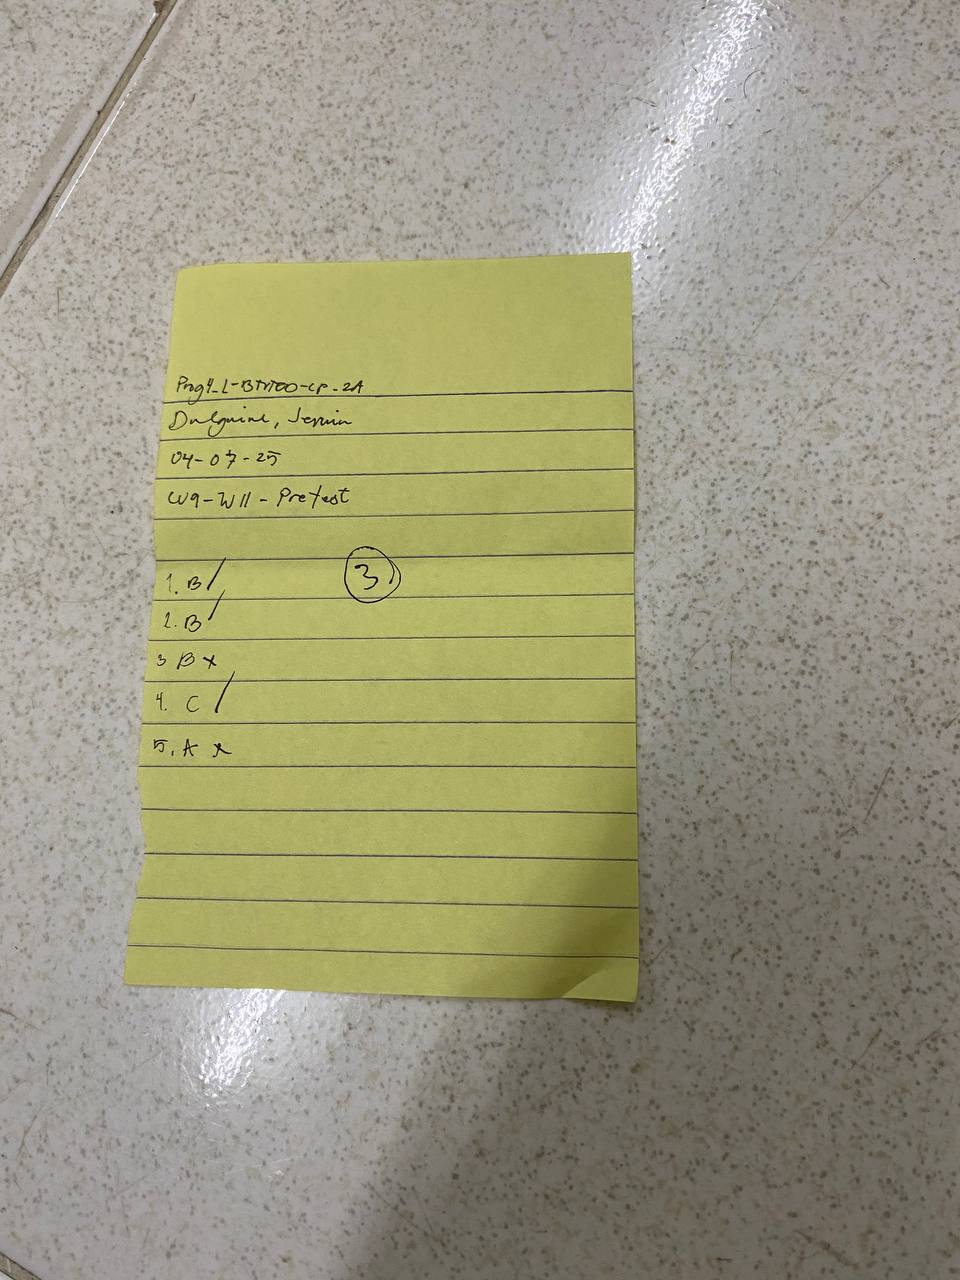 Prog4_L-BTVTED-CP-2A
Dulguime, Jervin
04-07-25
W9-W11-Pretest
1. B /
3
2. B /
3 B x
4. C /
5. A x